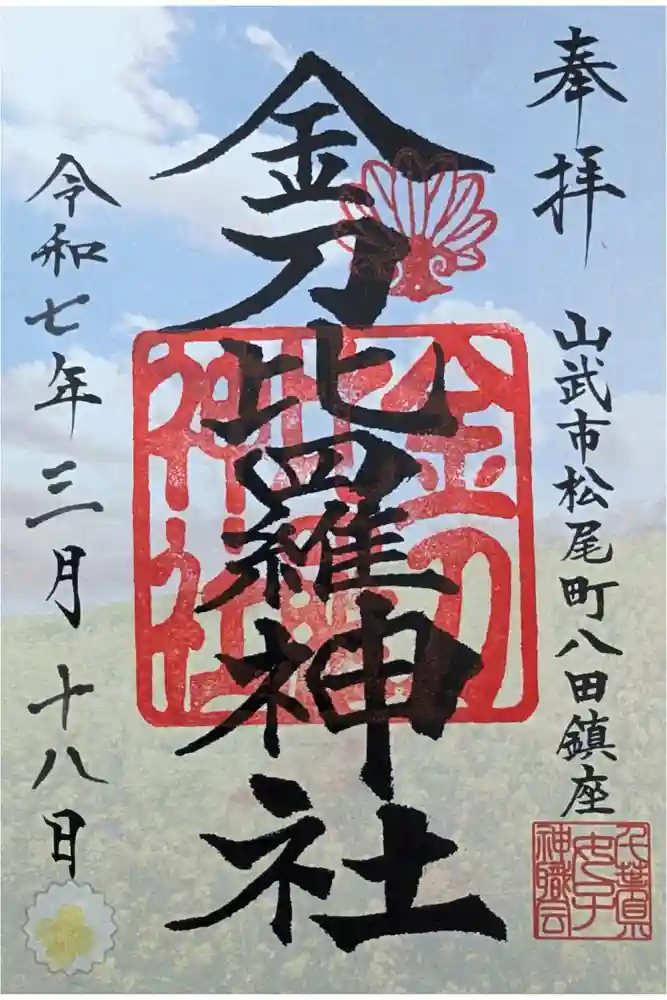 奉拝
山武市松尾町八田鎮座
千葉県
女子
神職会
金刀比羅神社
金刀
比羅
神社
令和七年三月十八日